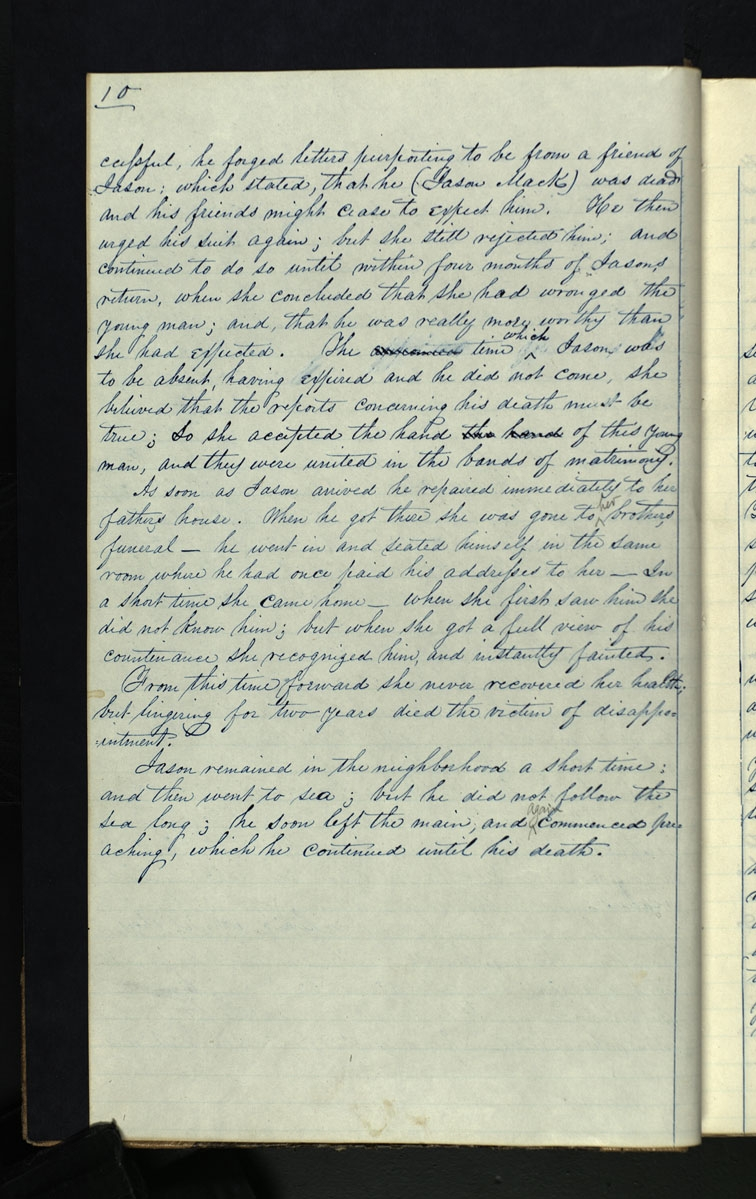 10
ccessful, he forged letters purporting to be from a friend of
Jason; which stated, that he (Jason Mack) was dead
and his friends might cease to expect him. He then
urged his suit again; but she still rejected him; and
continued to do so until within four months of Jasons
return, when she concluded that she had wronged the
young man; and, that he was really more worthy than
she had expected. The time which Jason was
to be absent, having expired and he did not come, she
believed that the reports concerning his death must be
true; So she accepted the hand the hand of this young
man, and they were united in the bands of matrimony.
As soon as Jason arrived he repaired immediately to her
fathers house. When he got there she was gone to her brothers
funeral — he went in and seated himself in the same
room where he had once paid his addresses to her — In
a short time she came home — when she first saw him she
did not know him; but when she got a full view of his
countenance she recognized him, and instantly fainted.
From this time forward she never recovered her health;
but lingering for two years died the victim of disappo-
intment.
Jason remained in the neighborhood a short time;
and then went to sea; but he did not follow the
sea long; he soon left the main, and again commenced pre-
aching, which he continued until his death.